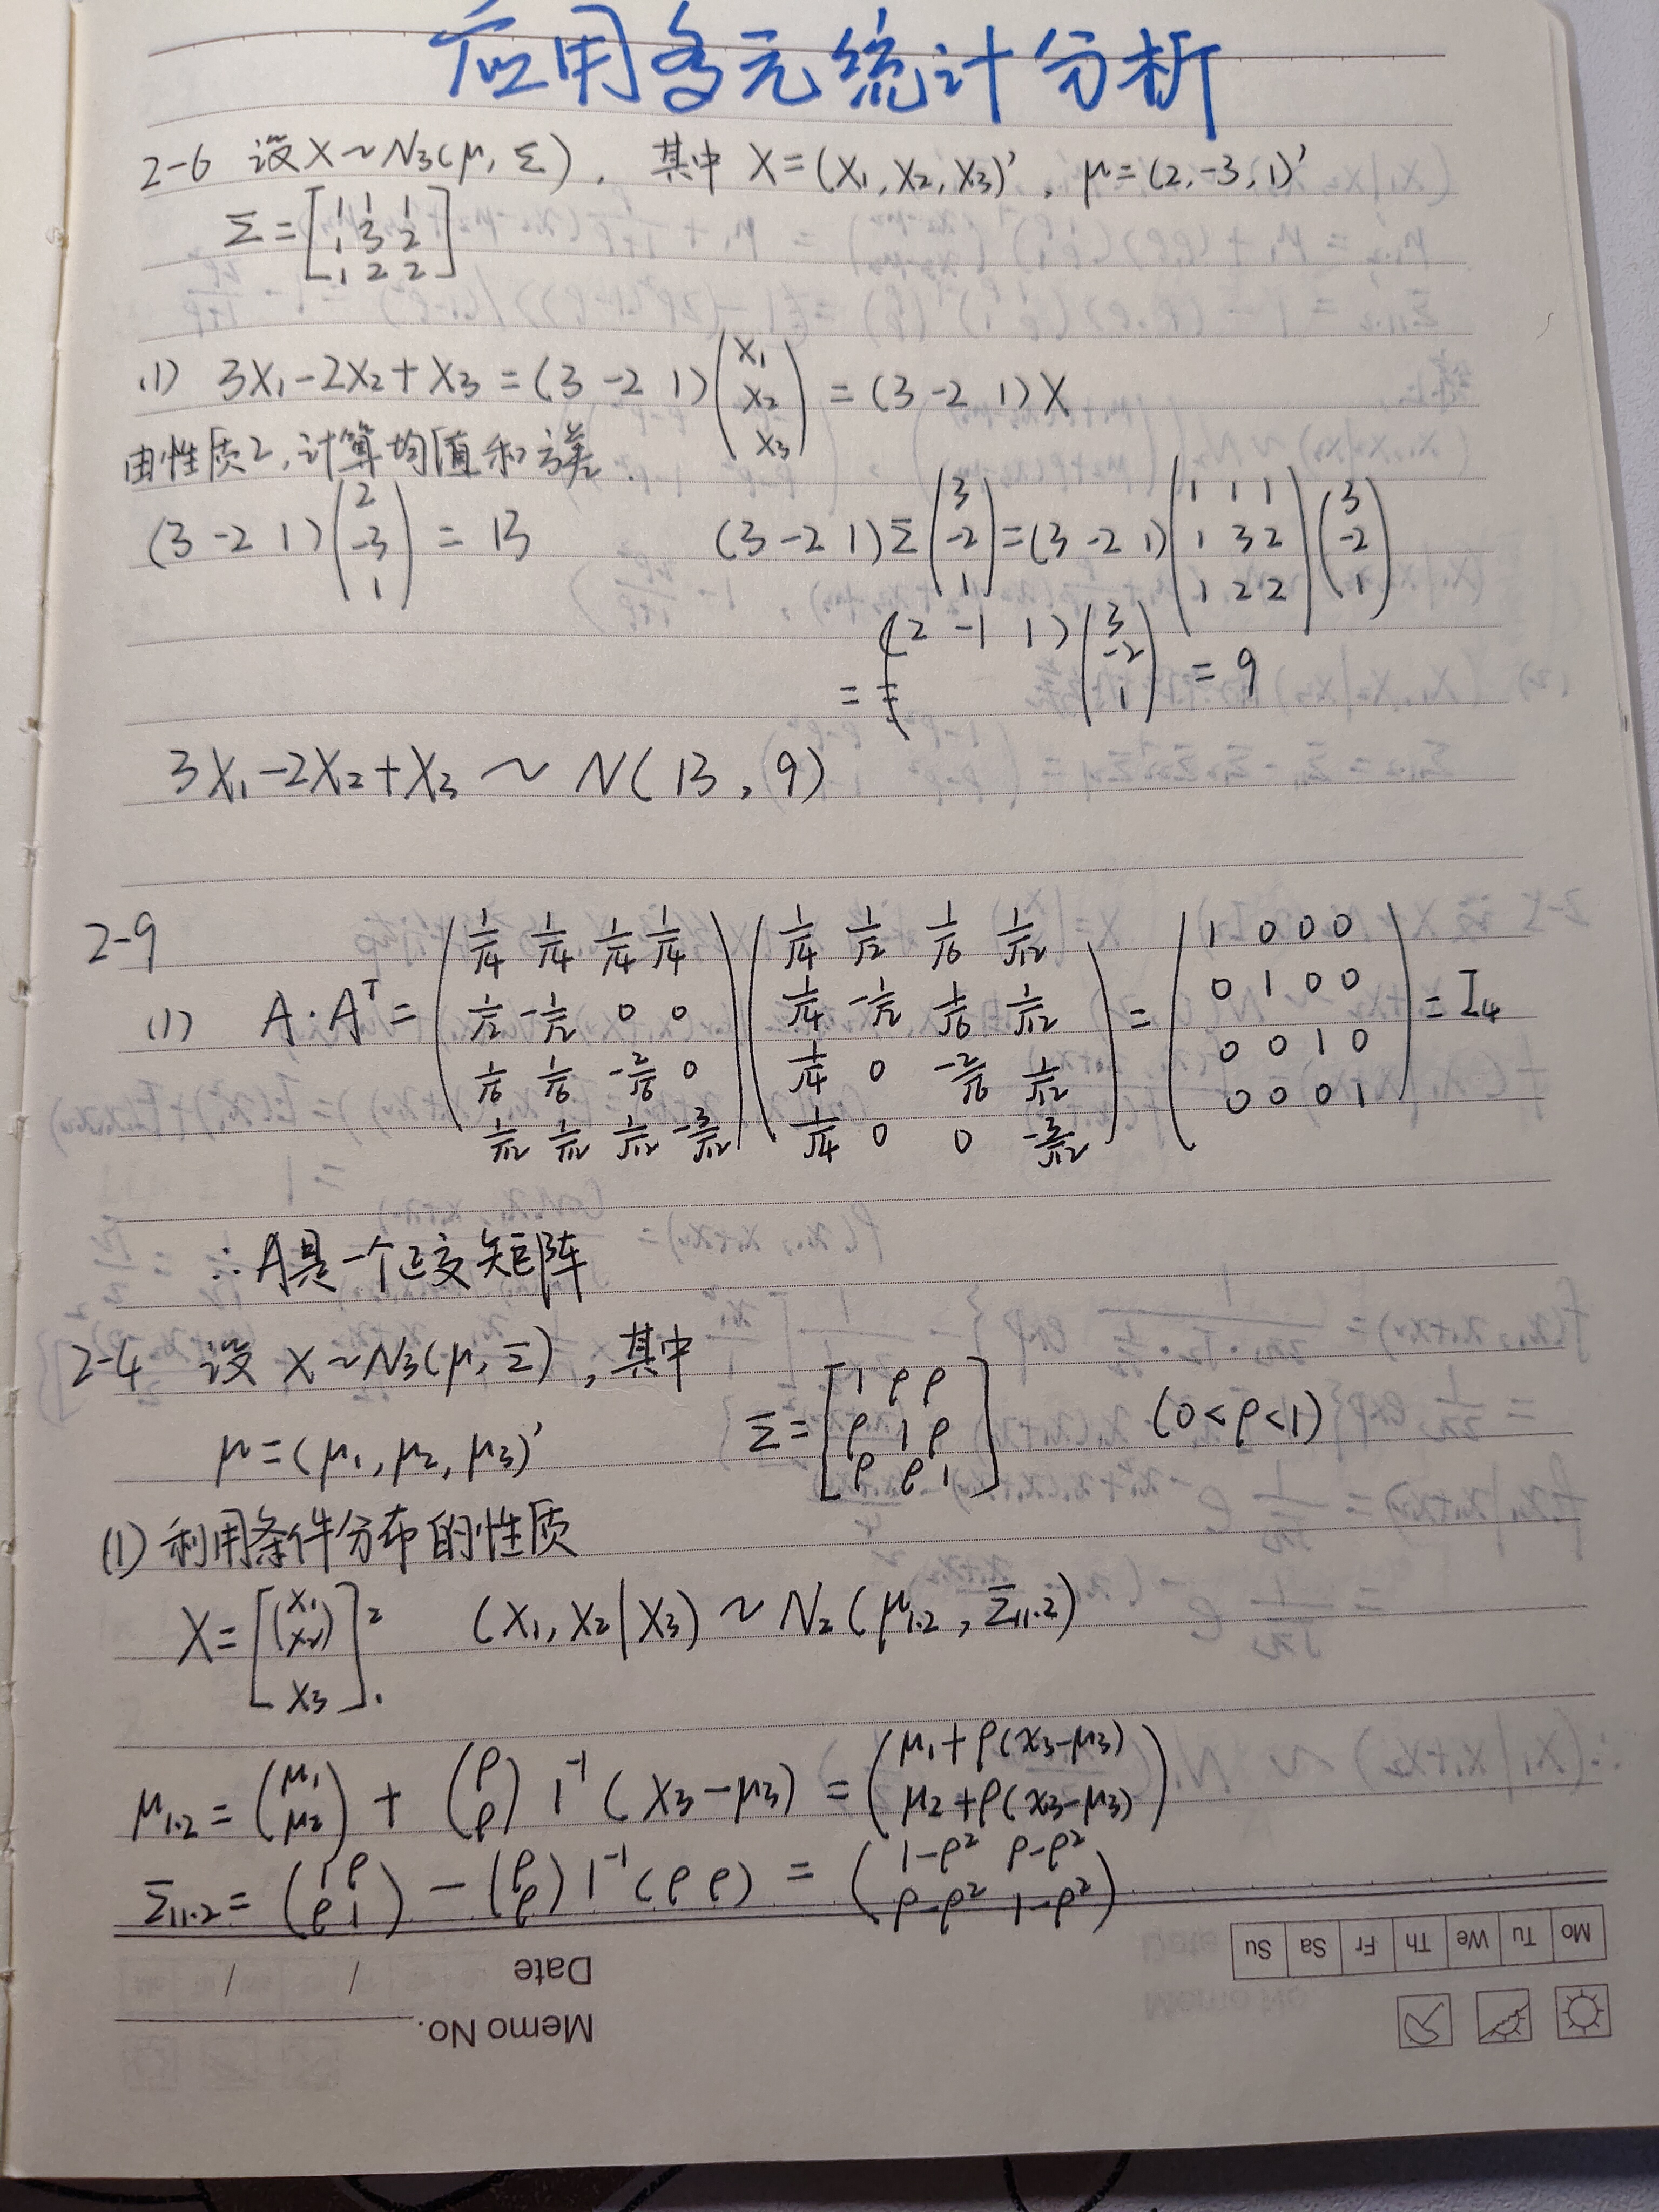 应用多元统计分析
2-6 设X~N₃(μ, Σ), 其中 X=(X₁, X₂, X₃)′, μ=(2,-3,1)′
Σ=[1 1 1
1 3 2
1 2 2]
(1) 3X₁-2X₂+X₃=(3 -2 1)(X₁ X₂ X₃)=(3 -2 1)X
由性质2,计算均值和方差.
(3 -2 1)(2 -3 1)=13 (3 -2 1)Σ(3 -2 1)=(3 -2 1)(1 1 1 1 3 2 1 2 2)(3 -2 1)
==(2 -1 1)(3 -2 1)=9
3X₁-2X₂+X₃ ~ N(13, 9)
2-9
(1) A·Aᵀ=(1/√4 1/√4 1/√4 1/√4)(1/√4 1/√2 1/√6 1/√12)=(1 0 0 0)=I₄
1/√2 -1/√2 0 0 1/√4 -1/√2 1/√6 1/√12 0 1 0 0
1/√6 1/√6 -2/√6 0 1/√4 0 -2/√6 1/√12 0 0 1 0
1/√12 1/√12 1/√12 -3/√12 1/√4 0 0 -3/√12 0 0 0 1
∴A是一个正交矩阵
2-4 设 X~N₃(μ, Σ), 其中
μ=(μ₁, μ₂, μ₃)′ Σ=[1 ρ ρ
ρ 1 ρ
ρ ρ 1] (0<ρ<1)
(1) 利用条件分布的性质
X=[(X₁ X₂) X₃]²₁ (X₁, X₂|X₃) ~ N₂(μ₁.₂, Σ₁₁.₂)
μ₁.₂=(μ₁ μ₂)+(ρ ρ)1⁻¹(X₃-μ₃)=(μ₁+ρ(x₃-μ₃) μ₂+ρ(x₃-μ₃))
Σ₁₁.₂=(1 ρ ρ 1)-(ρ ρ)1⁻¹(ρ ρ)=(1-ρ² ρ-ρ² ρ-ρ² 1-ρ²)
Mo Tu We Th Fr Sa Su
Date / /
Memo No.